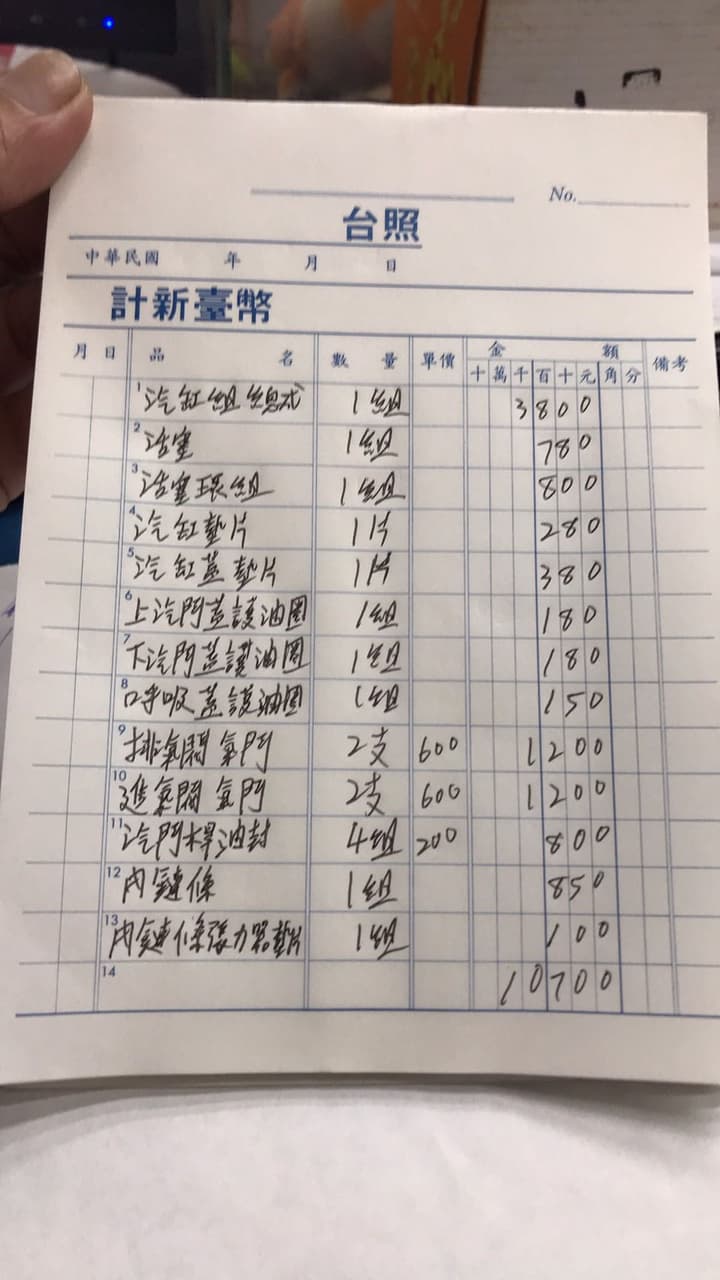 No.
台照
中華民國 年 月 日
計新臺幣
月 日 品 名 數 量 單價 金 額 備考
十 萬 千 百 十 元 角 分
1 汽缸組總成 1組 3800
2 活塞 1組 780
3 活塞環組 1組 800
4 汽缸墊片 1片 280
5 汽缸蓋墊片 1片 380
6 上汽門蓋護油圈 1組 180
7 下汽門蓋護油圈 1組 180
8 呼吸蓋護油圈 1組 150
9 排氣閥氣門 2支 600 1200
10 進氣閥氣門 2支 600 1200
11 汽門桿油封 4組 200 800
12 內鏈條 1組 850
13 內鏈條張力器墊片 1組 100
14 10700